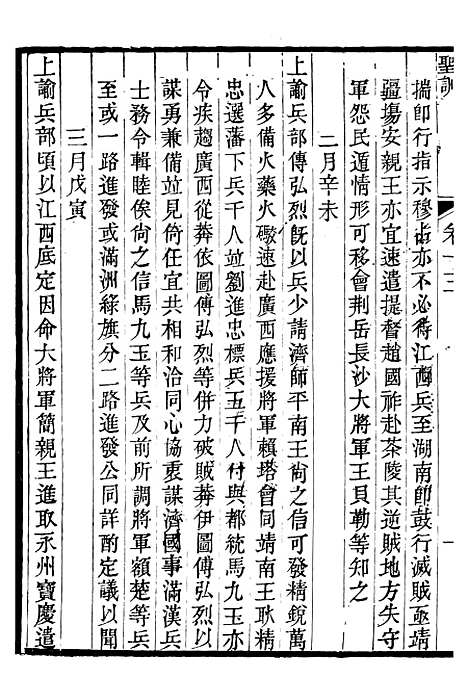 聖訓
卷一三
揣卽行指示穆占亦不必待江西兵至湖南卽鼓行滅賊亟靖
疆場安親王亦宜速遣提督趙國祚赴茶陵其逆賊地方失守
軍怨民遁情形可移會荆岳長沙大將軍王貝勒等知之
二月辛未
上諭兵部傳弘烈旣以兵少請濟師平南王尙之信可發精銳萬
人多備火藥火礮速赴廣西應援將軍賴塔會同靖南王耿精
忠選藩下兵千人並劉進忠標兵五千人付與都統馬九玉亦
令疾趨廣西從莽依圖傅弘烈等併力破賊莽伊圖傅弘烈
謀勇兼備並見倚任宜共相和洽同心協衷謀濟國事滿漢兵
士務令輯睦俟尙之信馬九玉等兵及前所調將軍額楚等兵
至或一路進發或滿洲綠旗分二路進發公同詳酌定議以聞
三月戊寅
上諭兵部頃以江西底定因命大將軍簡親王進取永州寶慶遣